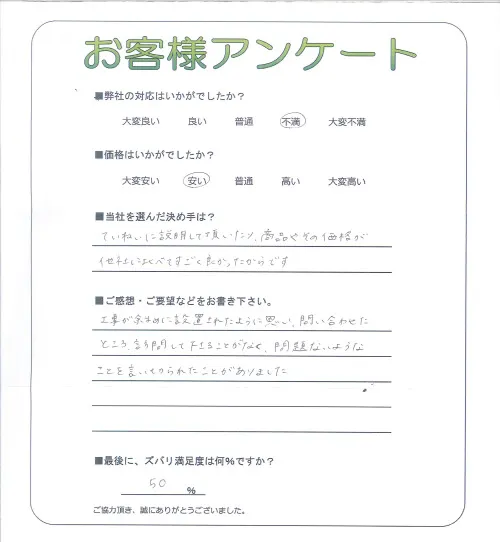 お客様アンケート
■弊社の対応はいかがでしたか？
大変良い 良い 普通 不満 大変不満
■価格はいかがでしたか？
大変安い 安い 普通 高い 大変高い
■当社を選んだ決め手は？
てい ねいに説明して頂いたり、商品やその価格が
他社に比べてすごく良かったからです
■ご感想・ご要望などをお書き下さい。
工事が余ために設置されたように思い、問い合わせた
ところ、訪問して下さることがなく、問題ないような
ことを言いきられたことがありました
■最後に、ズバリ満足度は何%ですか？
50 %
ご協力頂き、誠にありがとうございました。